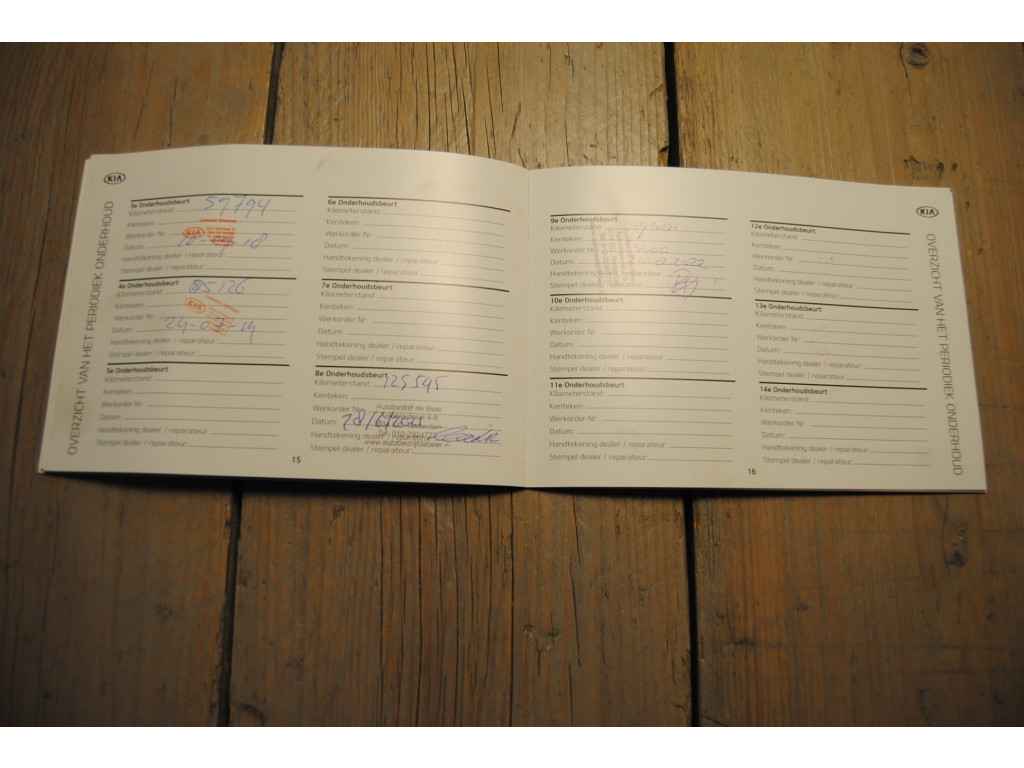 KIA
OVERZICHT VAN HET PERIODIEK ONDERHOUD
3e Onderhoudsbeurt
Kilometerstand: 57794
Kenteken:
Werkorder Nr:
KIA
Datum: 18
Handtekening dealer / reparateur:
Stempel dealer / reparateur:
4e Onderhoudsbeurt
Kilometerstand: 85126
Kenteken:
KIA
Werkorder Nr:
Datum: 24-07-19
Handtekening dealer / reparateur:
Stempel dealer / reparateur:
5e Onderhoudsbeurt
Kilometerstand:
Kenteken:
Werkorder Nr:
Datum:
Handtekening dealer / reparateur:
Stempel dealer / reparateur:
6e Onderhoudsbeurt
Kilometerstand:
Kenteken:
Werkorder Nr:
Datum:
Handtekening dealer / reparateur:
Stempel dealer / reparateur:
7e Onderhoudsbeurt
Kilometerstand:
Kenteken:
Werkorder Nr:
Datum:
Handtekening dealer / reparateur:
Stempel dealer / reparateur:
8e Onderhoudsbeurt
Kilometerstand: 125545
Kenteken:
Autobedrijf de Boer
Werkorder Nr:
Datum: 28/6/2021
Handtekening dealer / reparateur:
Stempel dealer / reparateur:
15
9e Onderhoudsbeurt
Kilometerstand:
Kenteken:
Werkorder Nr:
Datum: 02-22
Handtekening dealer / reparateur:
Stempel dealer / reparateur:
10e Onderhoudsbeurt
Kilometerstand:
Kenteken:
Werkorder Nr:
Datum:
Handtekening dealer / reparateur:
Stempel dealer / reparateur:
11e Onderhoudsbeurt
Kilometerstand:
Kenteken:
Werkorder Nr:
Datum:
Handtekening dealer / reparateur:
Stempel dealer / reparateur:
12e Onderhoudsbeurt
Kilometerstand:
Kenteken:
Werkorder Nr:
Datum:
Handtekening dealer / reparateur:
Stempel dealer / reparateur:
13e Onderhoudsbeurt
Kilometerstand:
Kenteken:
Werkorder Nr:
Datum:
Handtekening dealer / reparateur:
Stempel dealer / reparateur:
14e Onderhoudsbeurt
Kilometerstand:
Kenteken:
Werkorder Nr:
Datum:
Handtekening dealer / reparateur:
Stempel dealer / reparateur:
16
KIA
OVERZICHT VAN HET PERIODIEK ONDERHOUD